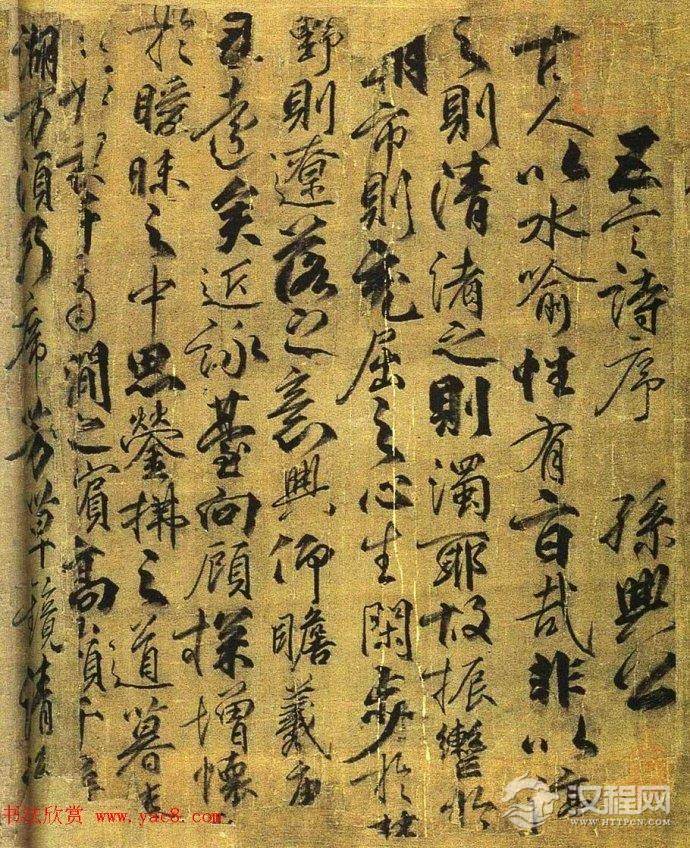 五言詩序 孫興公
古人以水喻性有旨哉非以渟
之則清淆之則濁耶故振轡於
朝市則充屈之心生閑步於林
野則遼落之意興仰瞻羲唐
已遠矣近詠臺閣顧探增懷
於曖昧之中思瑩拂之道暮春
禊于南澗之濱高嶺千尋
湖萬頃乃席芳草鏡清流
书法欣赏 www.yac8.com
汉程网
WWW.HTTPCN.COM